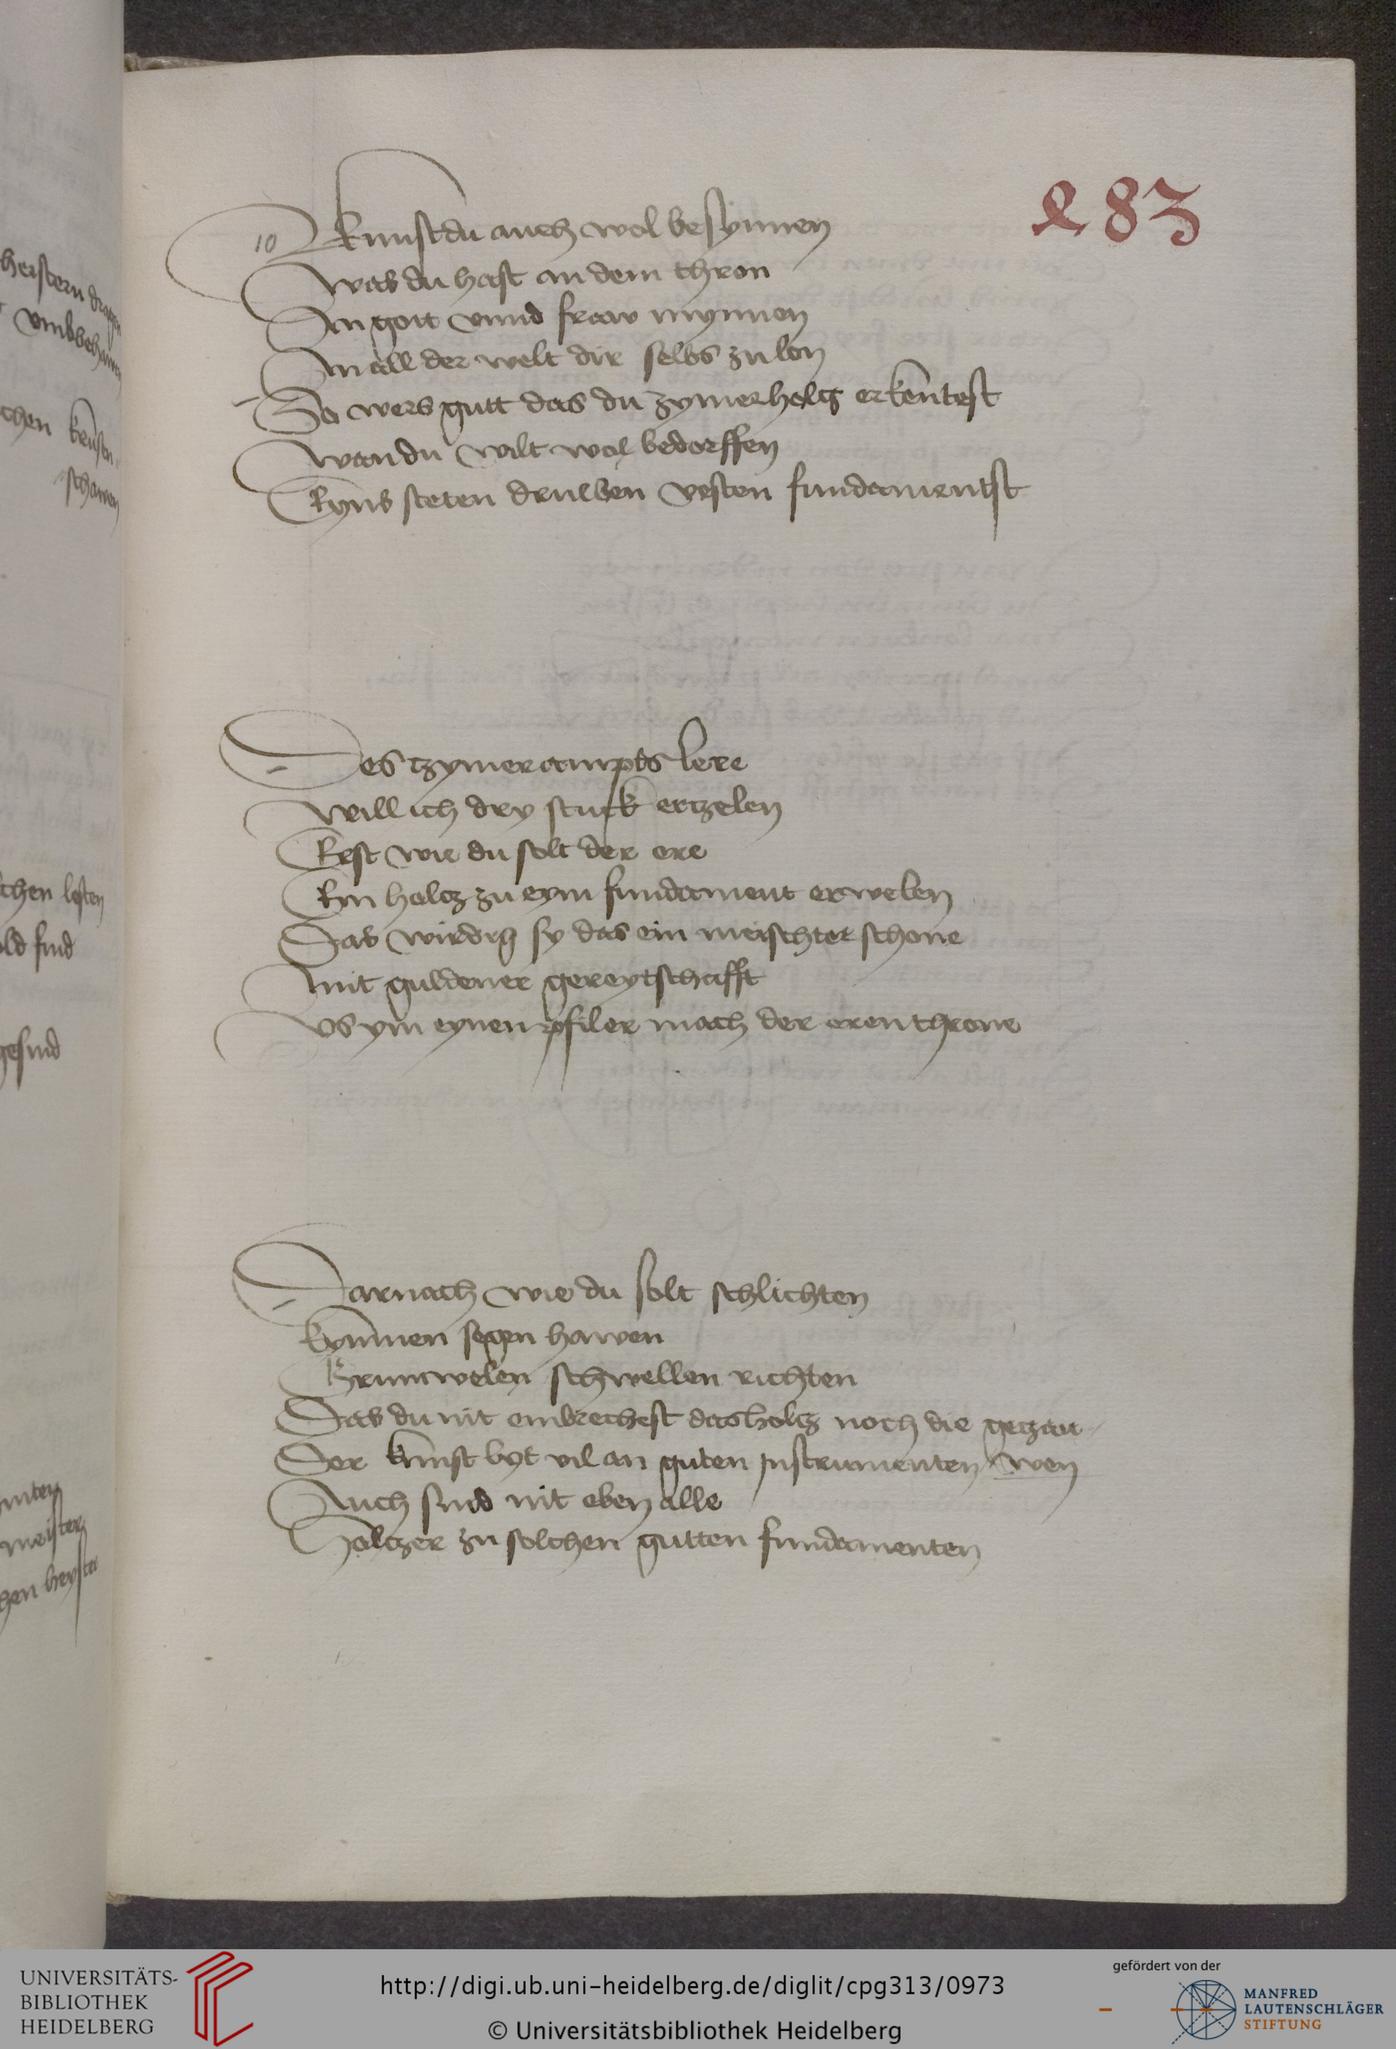 483
10 Kunstu auch wol besynnen
Was du hast an dem thron
An gott vnnd fraw mynnen
An all der welt dir selbs zu lon
So wers gutt das du zymerholcz erkentest
Wan du wilt wol bedorffen
Eyns steten vesten fundamentst
Des czymerampts lere
Will ich dry stuck erczelen
Erst wie du solt der ere
Ein holcz zu eym fundament erwelen
Das wirdig sy das ein meischter schone
Mit guldener gereytschafft
Vs ym eynen pfiler mach der eren throne
Darnach wie du solt schlichten
Kymmen segen hawen
Schwellen richten
Das du nit einbrechest das holcz noch die geczau
Der kunst lyt vil an guten Instrumenten wen
Auch sind nit eben alle
Holczer zu solchen gutten fundamenten
herstern
chen
schawen
chen lesten
old sind
gesind
meister
UNIVERSITÄTS-
BIBLIOTHEK
HEIDELBERG
http://digi.ub.uni-heidelberg.de/diglit/cpg313/0973
© Universitätsbibliothek Heidelberg
gefördert von der
MANFRED
LAUTENSCHLÄGER
STIFTUNG